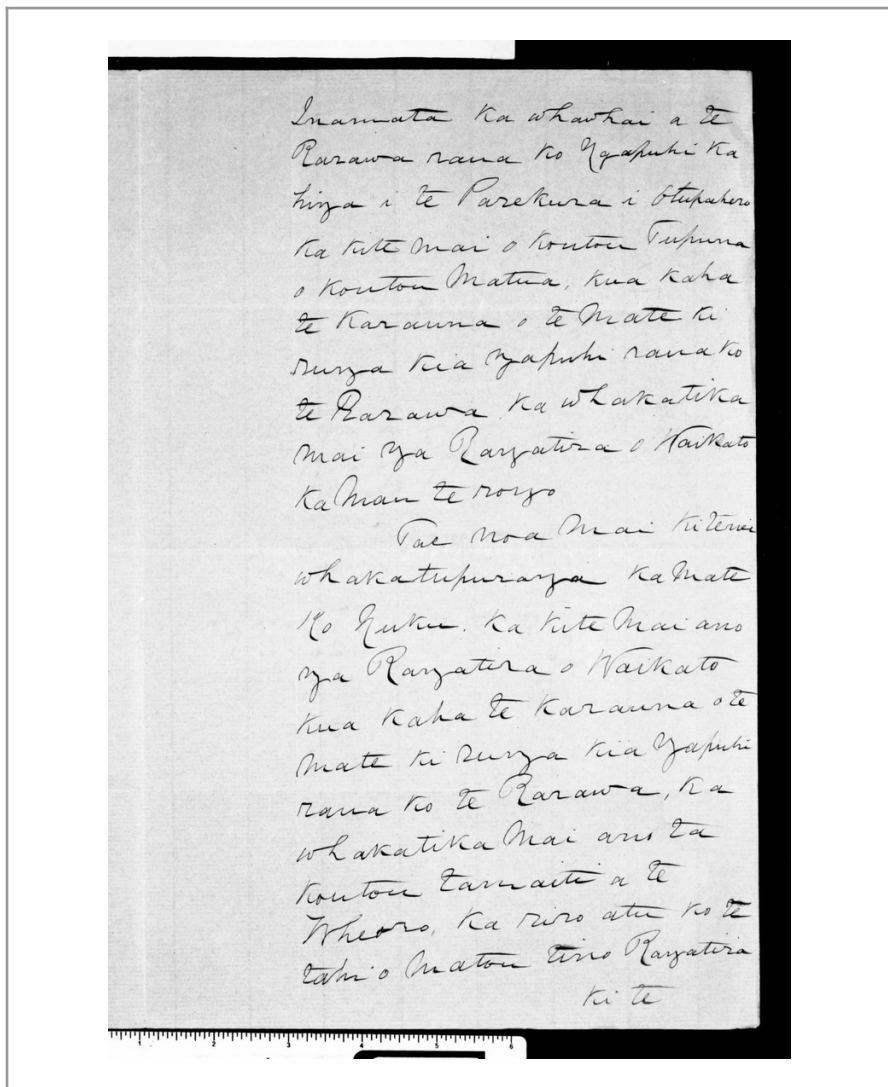 Inamata ka whawhai a te
Rarawa raua ko Ngapuhi ka
hinga i te Parekura i Otupahero
ka kite mai o koutou Tupuna
o koutou Matua, kua kaha
te karauna o te Mate ki
runga kia Ngapuhi raua ko
te Rarawa ka whakatika
mai nga Rangatira o Waikato
ka Mau te rongo
Tae noa mai ki tenei
whakatupuranga ka Mate
Ko Nuku. ka kite Mai ano
nga Rangatira o Waikato
kua kaha te karauna o te
Mate ki runga kia Ngapuhi
raua ko te Rarawa, ka
whakatika Mai ano ta
koutou tamaiti a te
Wheoro, ka riro atu ko te
tahi o Matou tino Rangatira
ki te
1 2 3 4 5 6